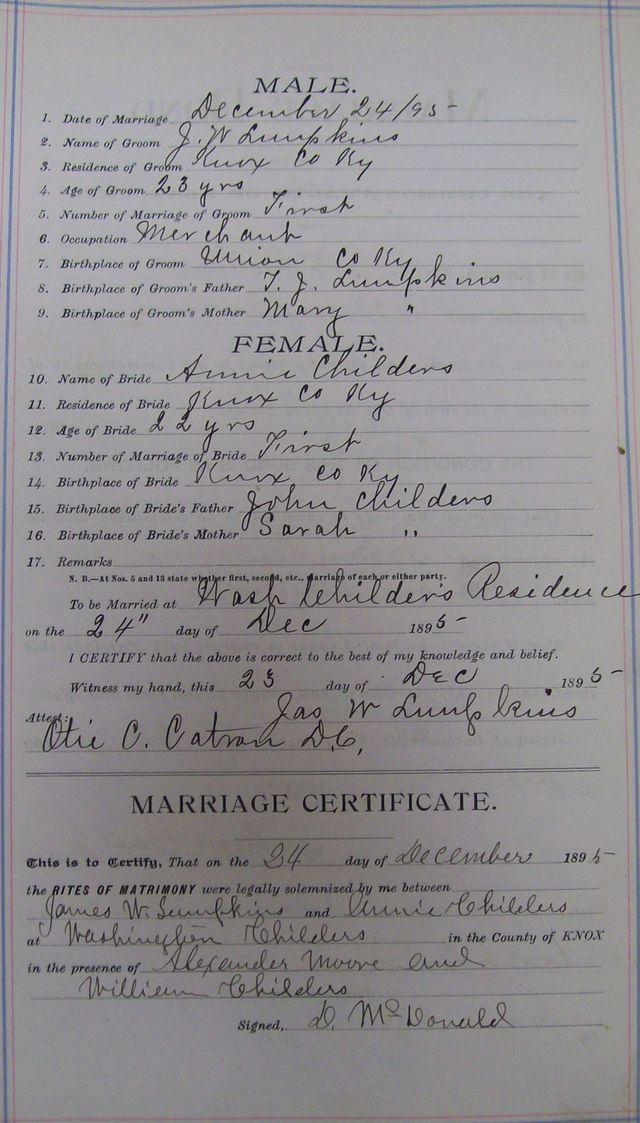 MALE.
1. Date of Marriage December 24/95
2. Name of Groom J. W Lumpkins
3. Residence of Groom Knox Co Ky
4. Age of Groom 23 yrs
5. Number of Marriage of Groom First
6. Occupation Merchant
7. Birthplace of Groom Union Co Ky
8. Birthplace of Groom's Father T. J. Lumpkins
9. Birthplace of Groom's Mother Mary "
FEMALE.
10. Name of Bride Annie Childers
11. Residence of Bride Knox Co Ky
12. Age of Bride 22 yrs
13. Number of Marriage of Bride First
14. Birthplace of Bride Knox Co Ky
15. Birthplace of Bride's Father John Childers
16. Birthplace of Bride's Mother Sarah "
17. Remarks
N. B.—At Nos. 5 and 13 state whether first, second, etc., marriage of each or either party.
To be Married at Wash Childers Residence
on the 24" day of Dec 1895
I CERTIFY that the above is correct to the best of my knowledge and belief.
Witness my hand, this 23 day of Dec 1895
Jas W Lumpkins
Attest:
Otie C. Catron D.C,
MARRIAGE CERTIFICATE.
This is to Certify, That on the 24 day of December 1895
the RITES OF MATRIMONY were legally solemnized by me between
James W. Lumpkins and Annie Childers
at Washington Childers in the County of KNOX
in the presence of Alexander Moore and
William Childers
Signed, D. McDonald